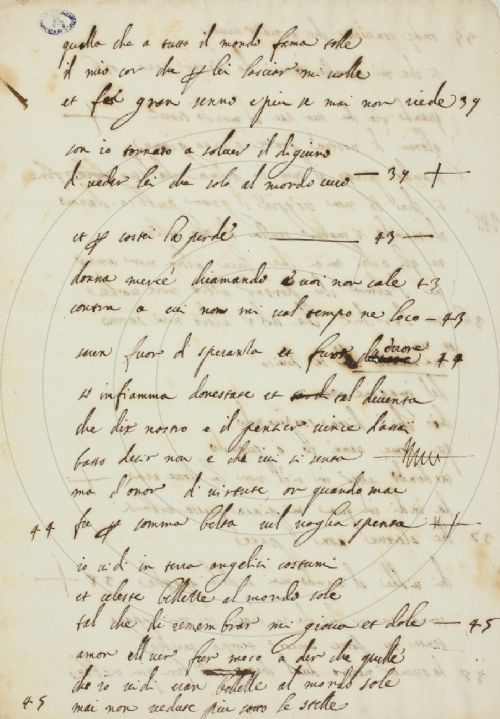 quella che a tutto il mondo fama tolle
il mio cor che ꝑ lei lasciar mi volle
et fe gran senno e piu se mai non riede 39
son io tornato a solver il digiuno
di veder lei che sola al mondo curo — 39 +
et ꝑ costei la perde — 43 —
donna mercé chiamando e voi non cale 43
contra a cui non mi val tempo ne loco — 43
 fuor di speranza et fuor d'errore 44
si infiamma d'onestate et tal diventa
che dir nostro e il pensier vince d'assai
basso desir non è che ivi si senta —
ma d'onor di virtute, or quando mai
44 fu ꝑ somma beltà vil voglia spenta ++
io vidi in terra angelici costumi
et celeste bellezze al mondo sole
tal che di rimembrar mi giova et dole — 45
amor e'l ver fur meco a dir che quelle
che io vidi eran bellezze al mondo sole
45 mai non vedute piu sotto le stelle